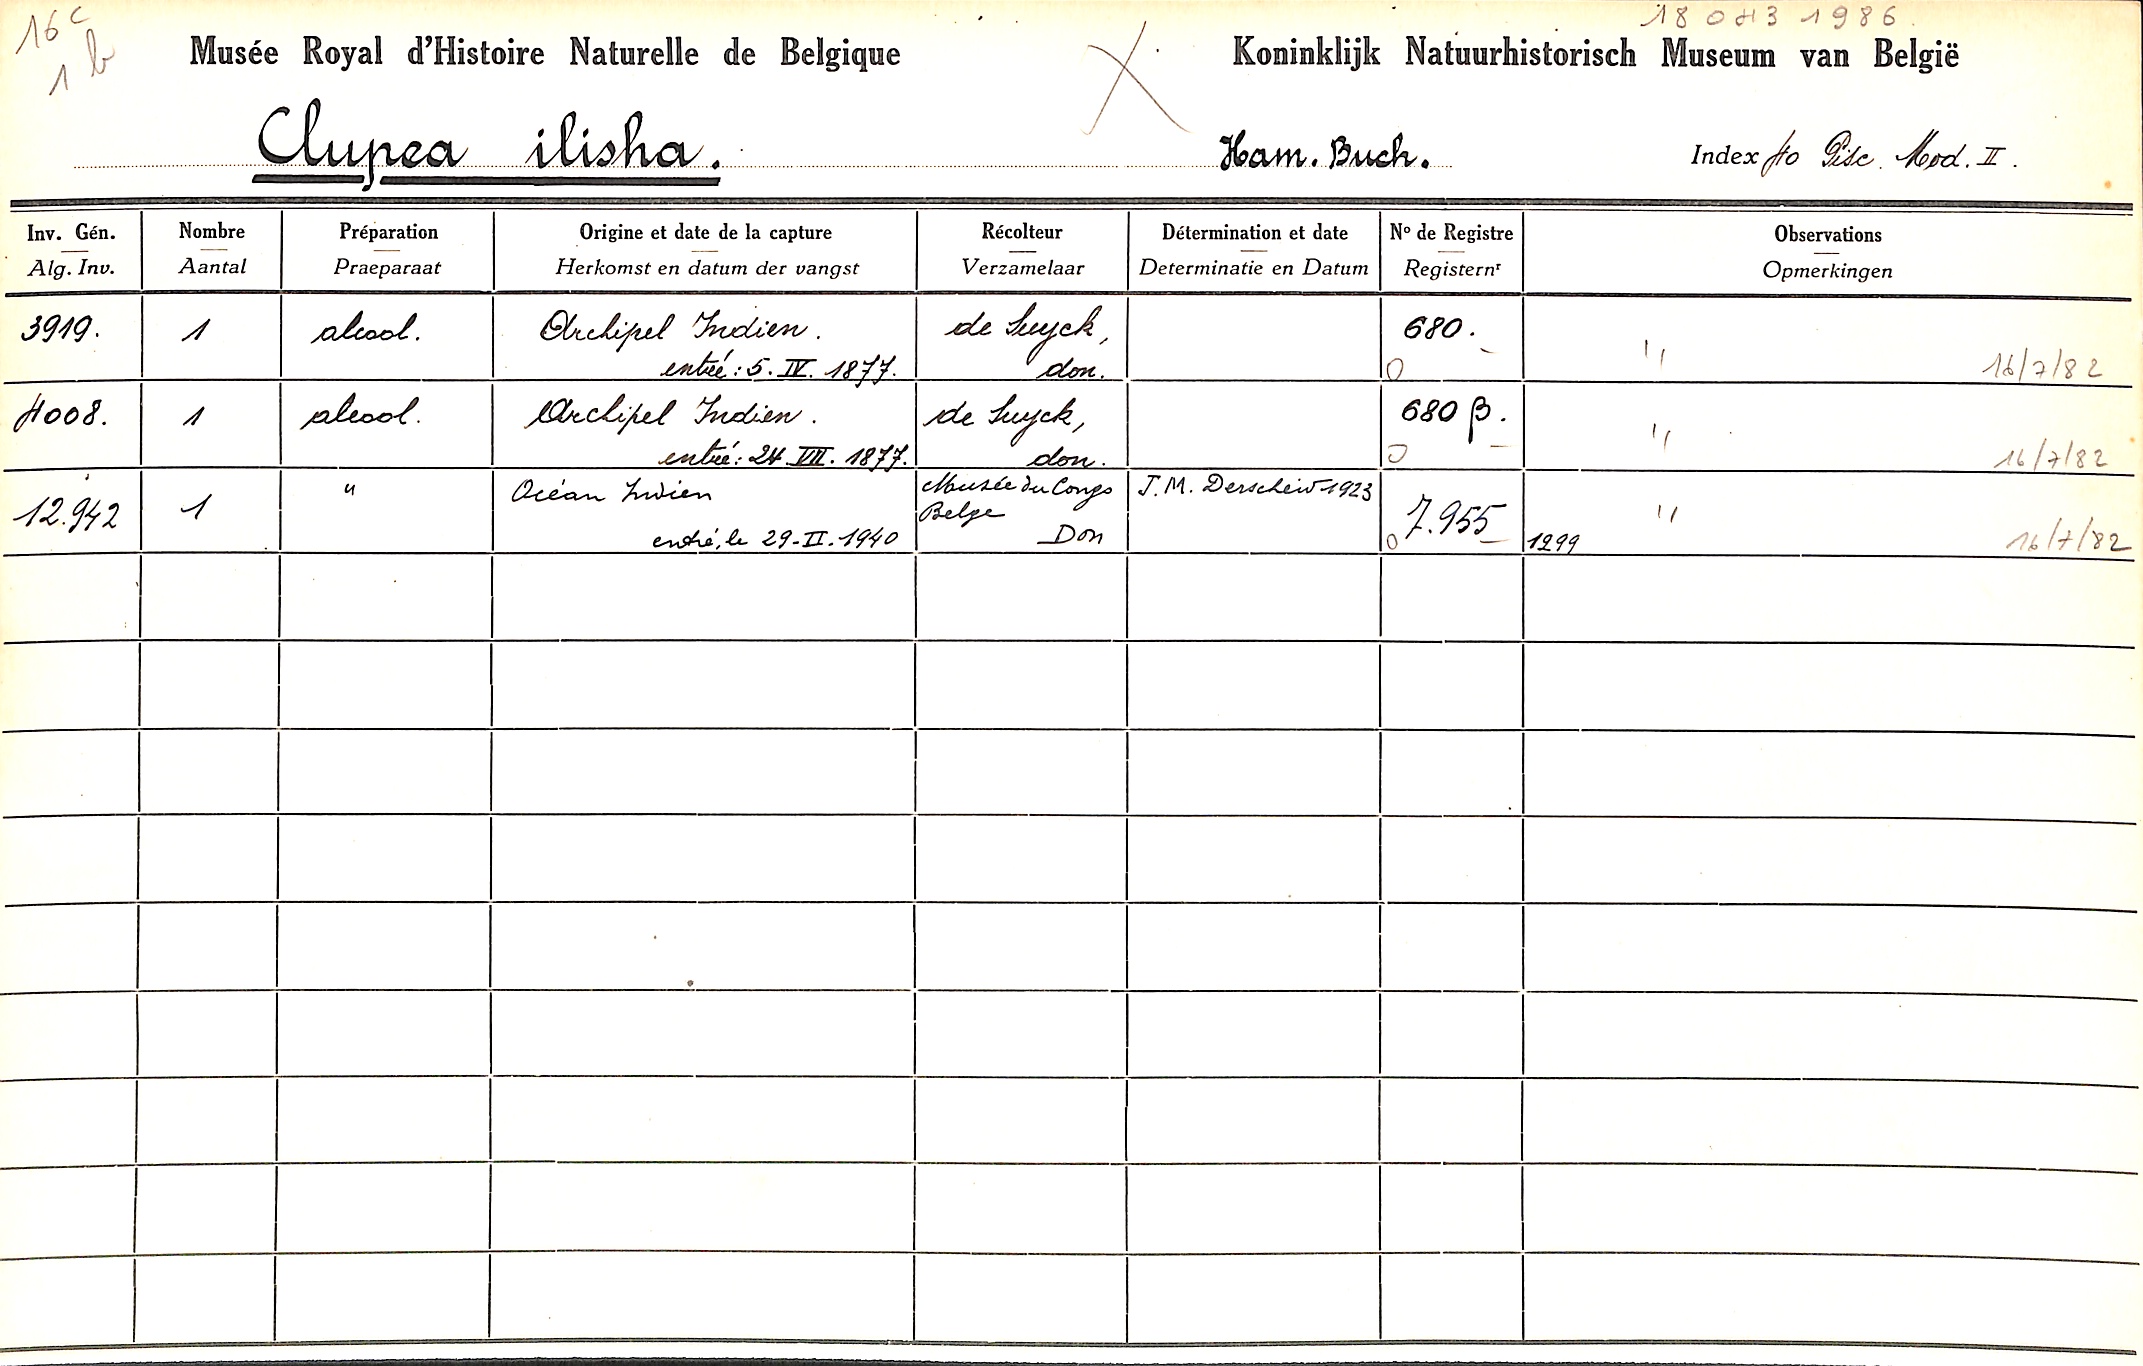 16 c
1 b
18 043 1986
Musée Royal d'Histoire Naturelle de Belgique
Koninklijk Natuurhistorisch Museum van België
Clupea ilisha.
Ham. Buch.
Index 40 Pisc. Mod. II.
Inv. Gén. Nombre Préparation Origine et date de la capture Récolteur Détermination et date Nº de Registre Observations
Alg. Inv. Aantal Praeparaat Herkomst en datum der vangst Verzamelaar Determinatie en Datum Registernr Opmerkingen
3919. 1 alcool. Archipel Indien. de Luyck, 680. "
entrée: 5. IV. 1877. don. 0 16/7/82
4008. 1 alcool. Archipel Indien. de Luyck, 680 β. "
entrée: 24. VII. 1877. don. 0 16/7/82
12.942 1 " Océan Indien Musée du Congo J. M. Derscheid 1923 7.955 "
Belge
entré, le 29-II-1940 Don 0 1299 16/7/82